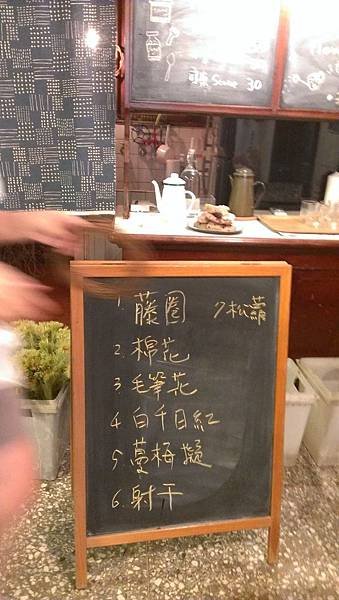 鬆 Scone 30
1. 藤圈
2. 棉花
3. 毛筆花
4. 白千日紅
5. 蔓梅擬
6. 射干
7 松蘿